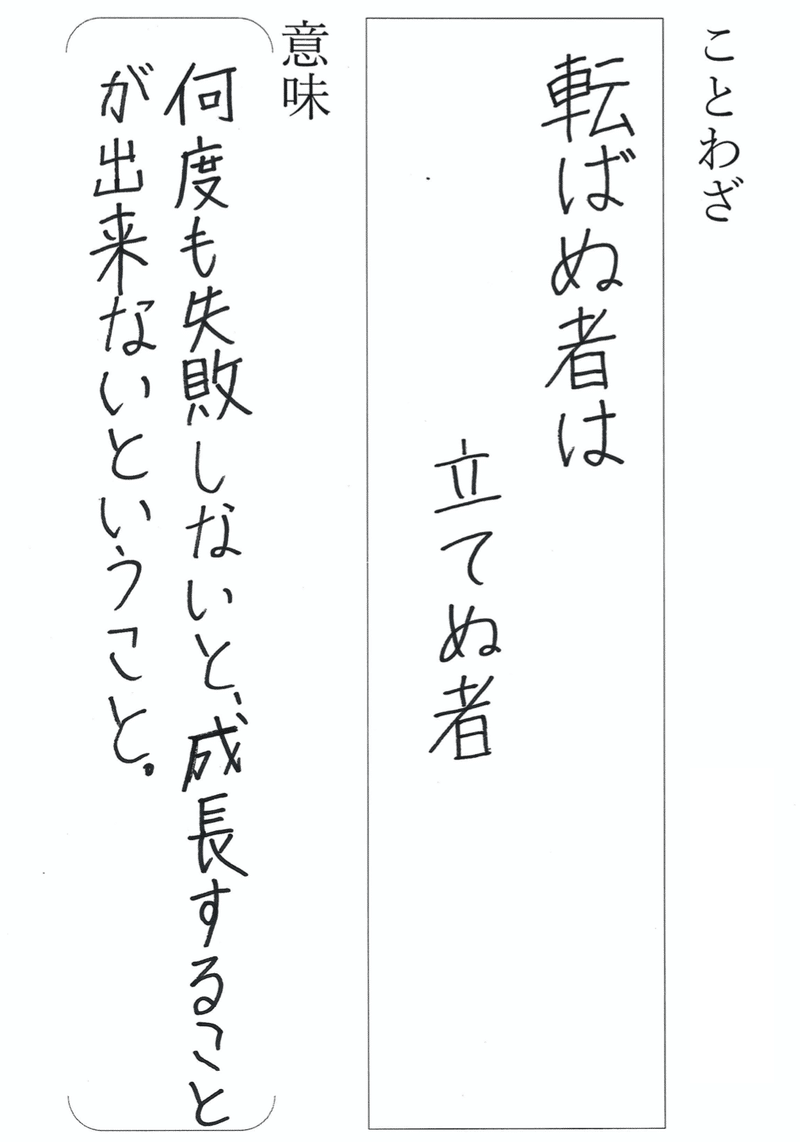 ことわざ
転ばぬ者は
立てぬ者
意味
何度も失敗しないと、成長すること
が出来ないということ。